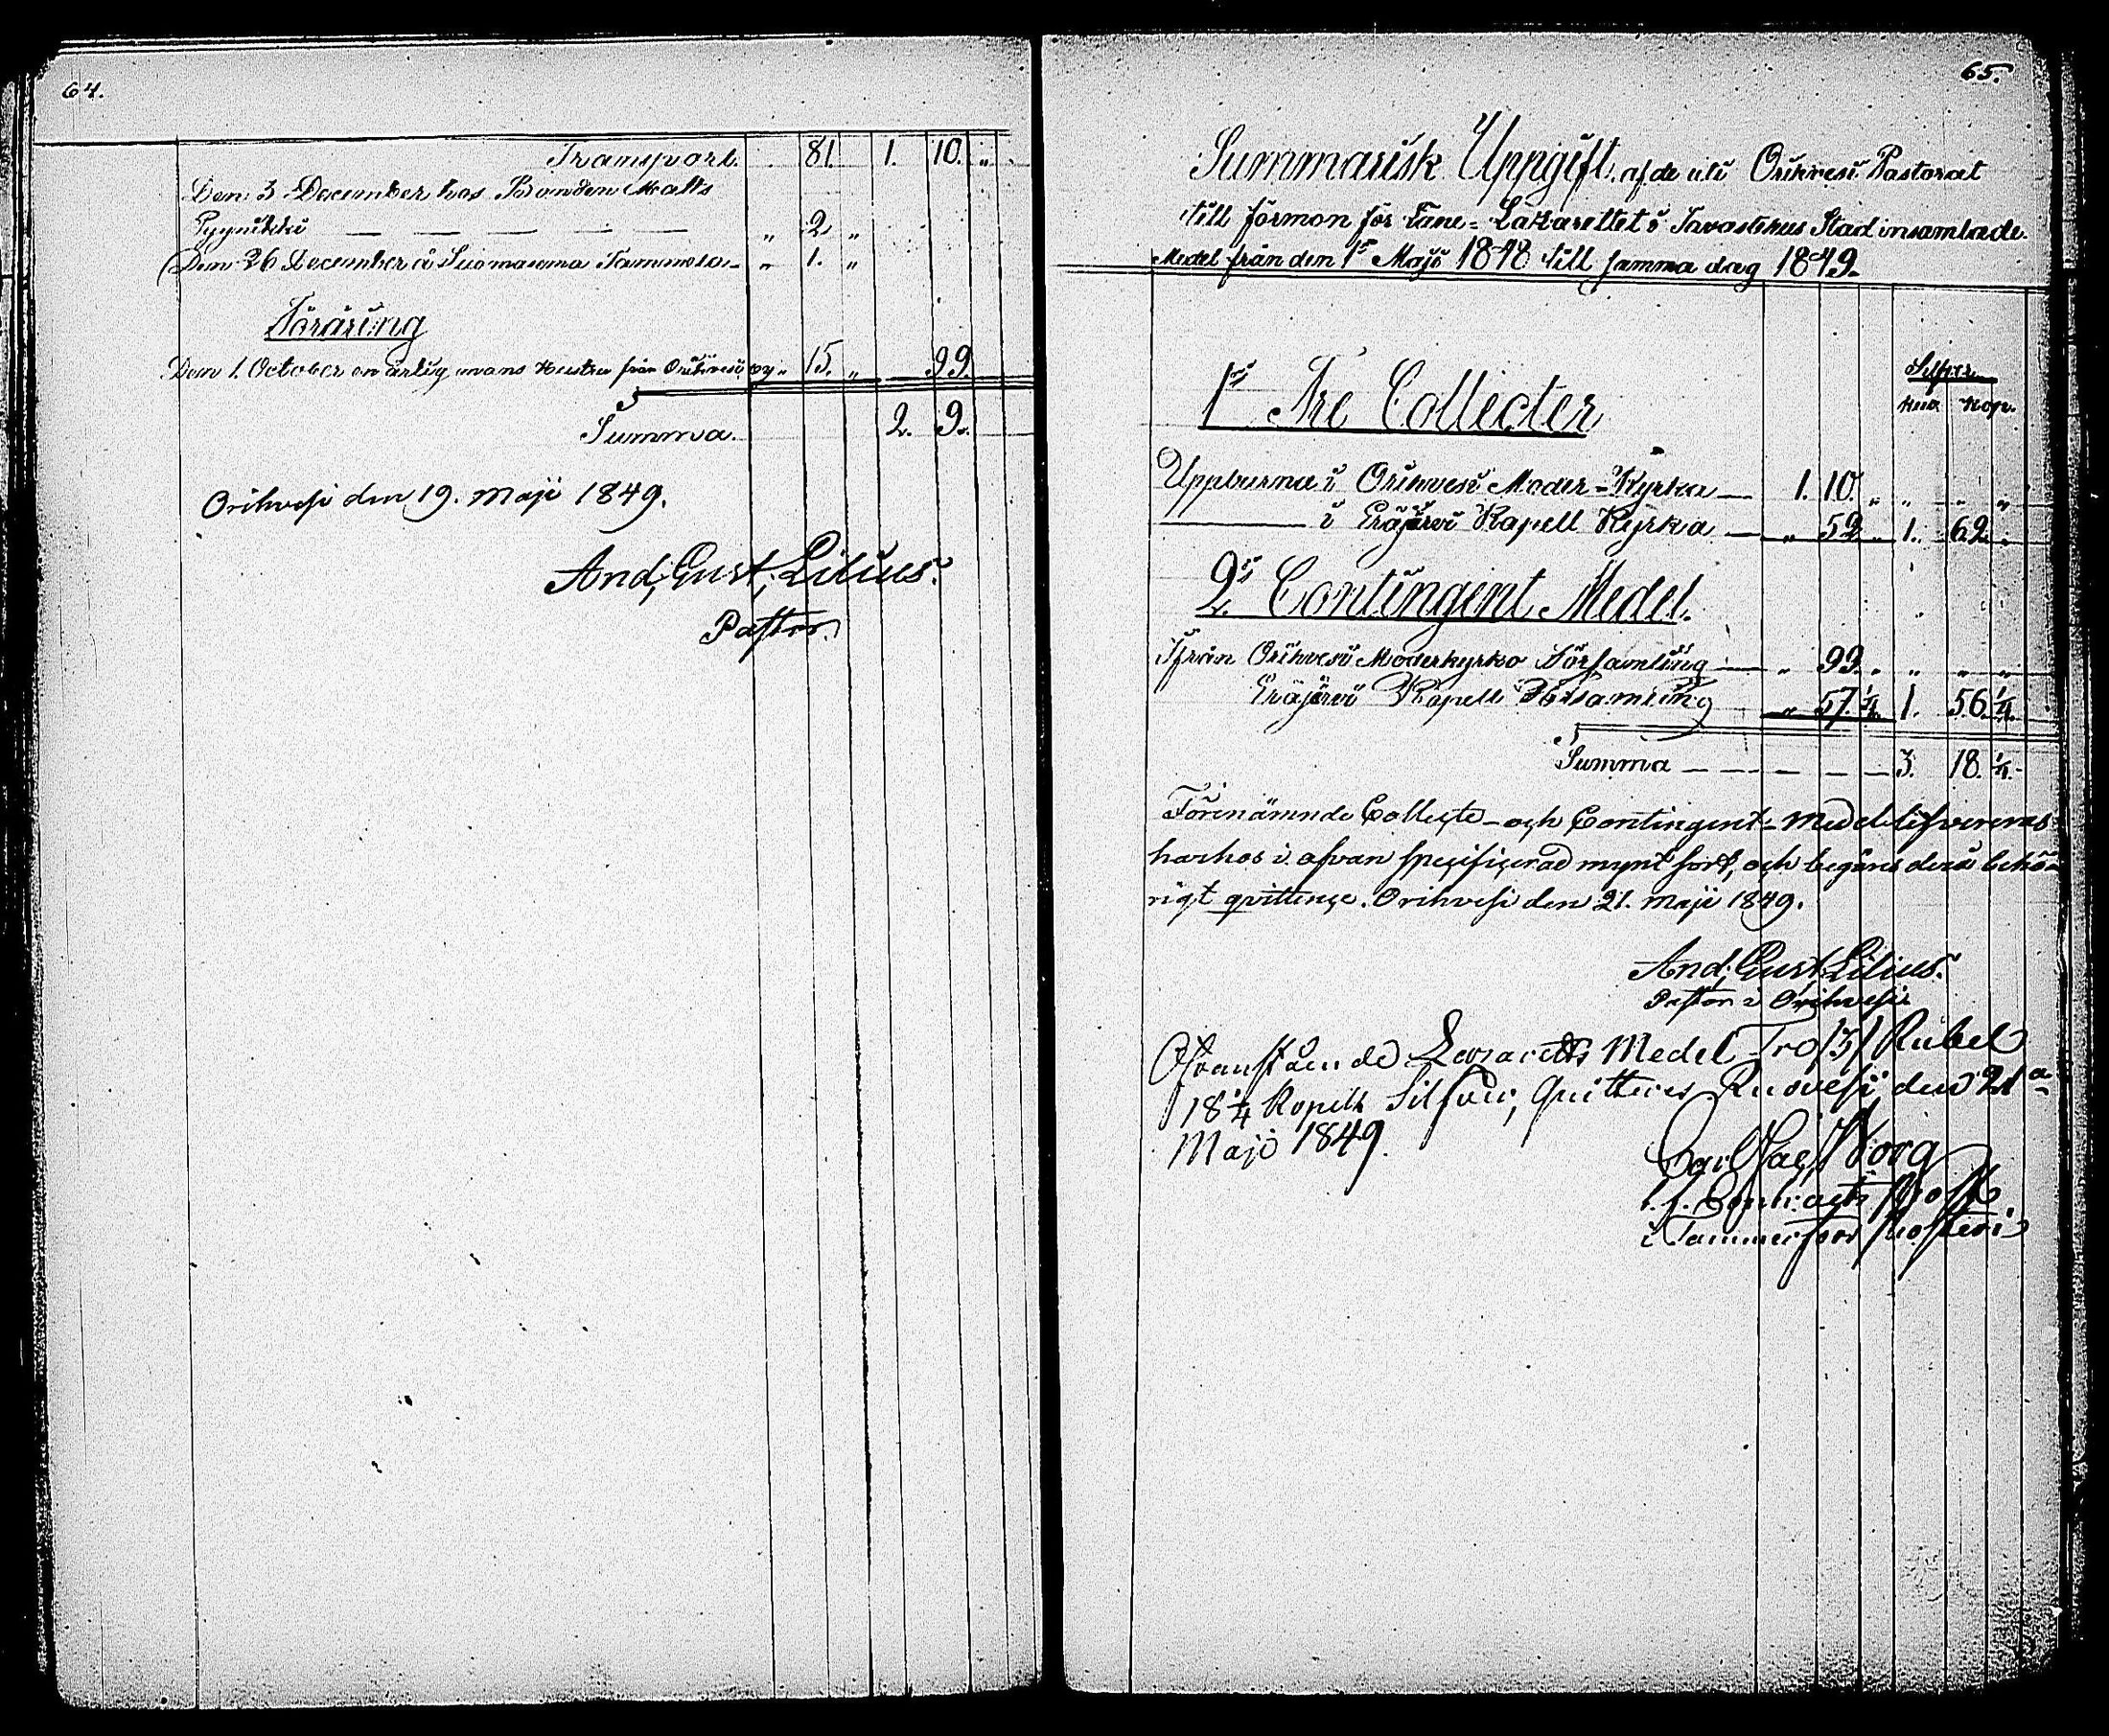 64.
Transport. 81. 1. 10. "
Den 3 December hos Bonden Matts
Pyynikki — — — — — " 2. "
Den 26 December å Suomasema Tammela - " 1. "
Föräring
Den 1. October en ärlig mans Hustru från Orihvesi by " 15. " 99
Summa. 2. 9.
Orihvesi den 19. Maji 1849.
And; Gust; Lilius.
Pastor.
65.
Summarisk Uppgift, af de uti Orihvesi Pastorat
till förmon för Läne-Lazarettet i Tavastehus Stad insamlade
Medel från den 1s Maji 1848 till samma dag 1849.
Silfver
Rub. Kop.
1s Tre Collecter
Uppburna i Orihvesi Moder-Kyrka — 1. 10. " " " "
— i Eräjervi Kapell Kyrka — " 52 " 1. 62. "
2s Contingent Medel.
Ifrån Orihvesi Moderkyrko Församling — " 99. " " " "
Eräjervi Kapell Församling " 57. 1/4 1. 56. 1/4
Summa — — — — — 3. 18. 1/4
Förenämnde Collecte- och Contingent-Medel lefvereras
härhos i ofvan specificerad mynt sort, och begäres derå behö-
rigt qvittence. Orihvesi den 21. Maji 1849.
And; Gust; Lilius.
Pastor i Orihvesi
Ofvanstående Lazaretts Medel Tre /3/ Rubel
18 1/4 Kopek Silfver, Quitteras Ruovesi den 21a
Maji 1849.
Carl Borg
t. f. Contracts Prost
i Tammerfors Prosteri